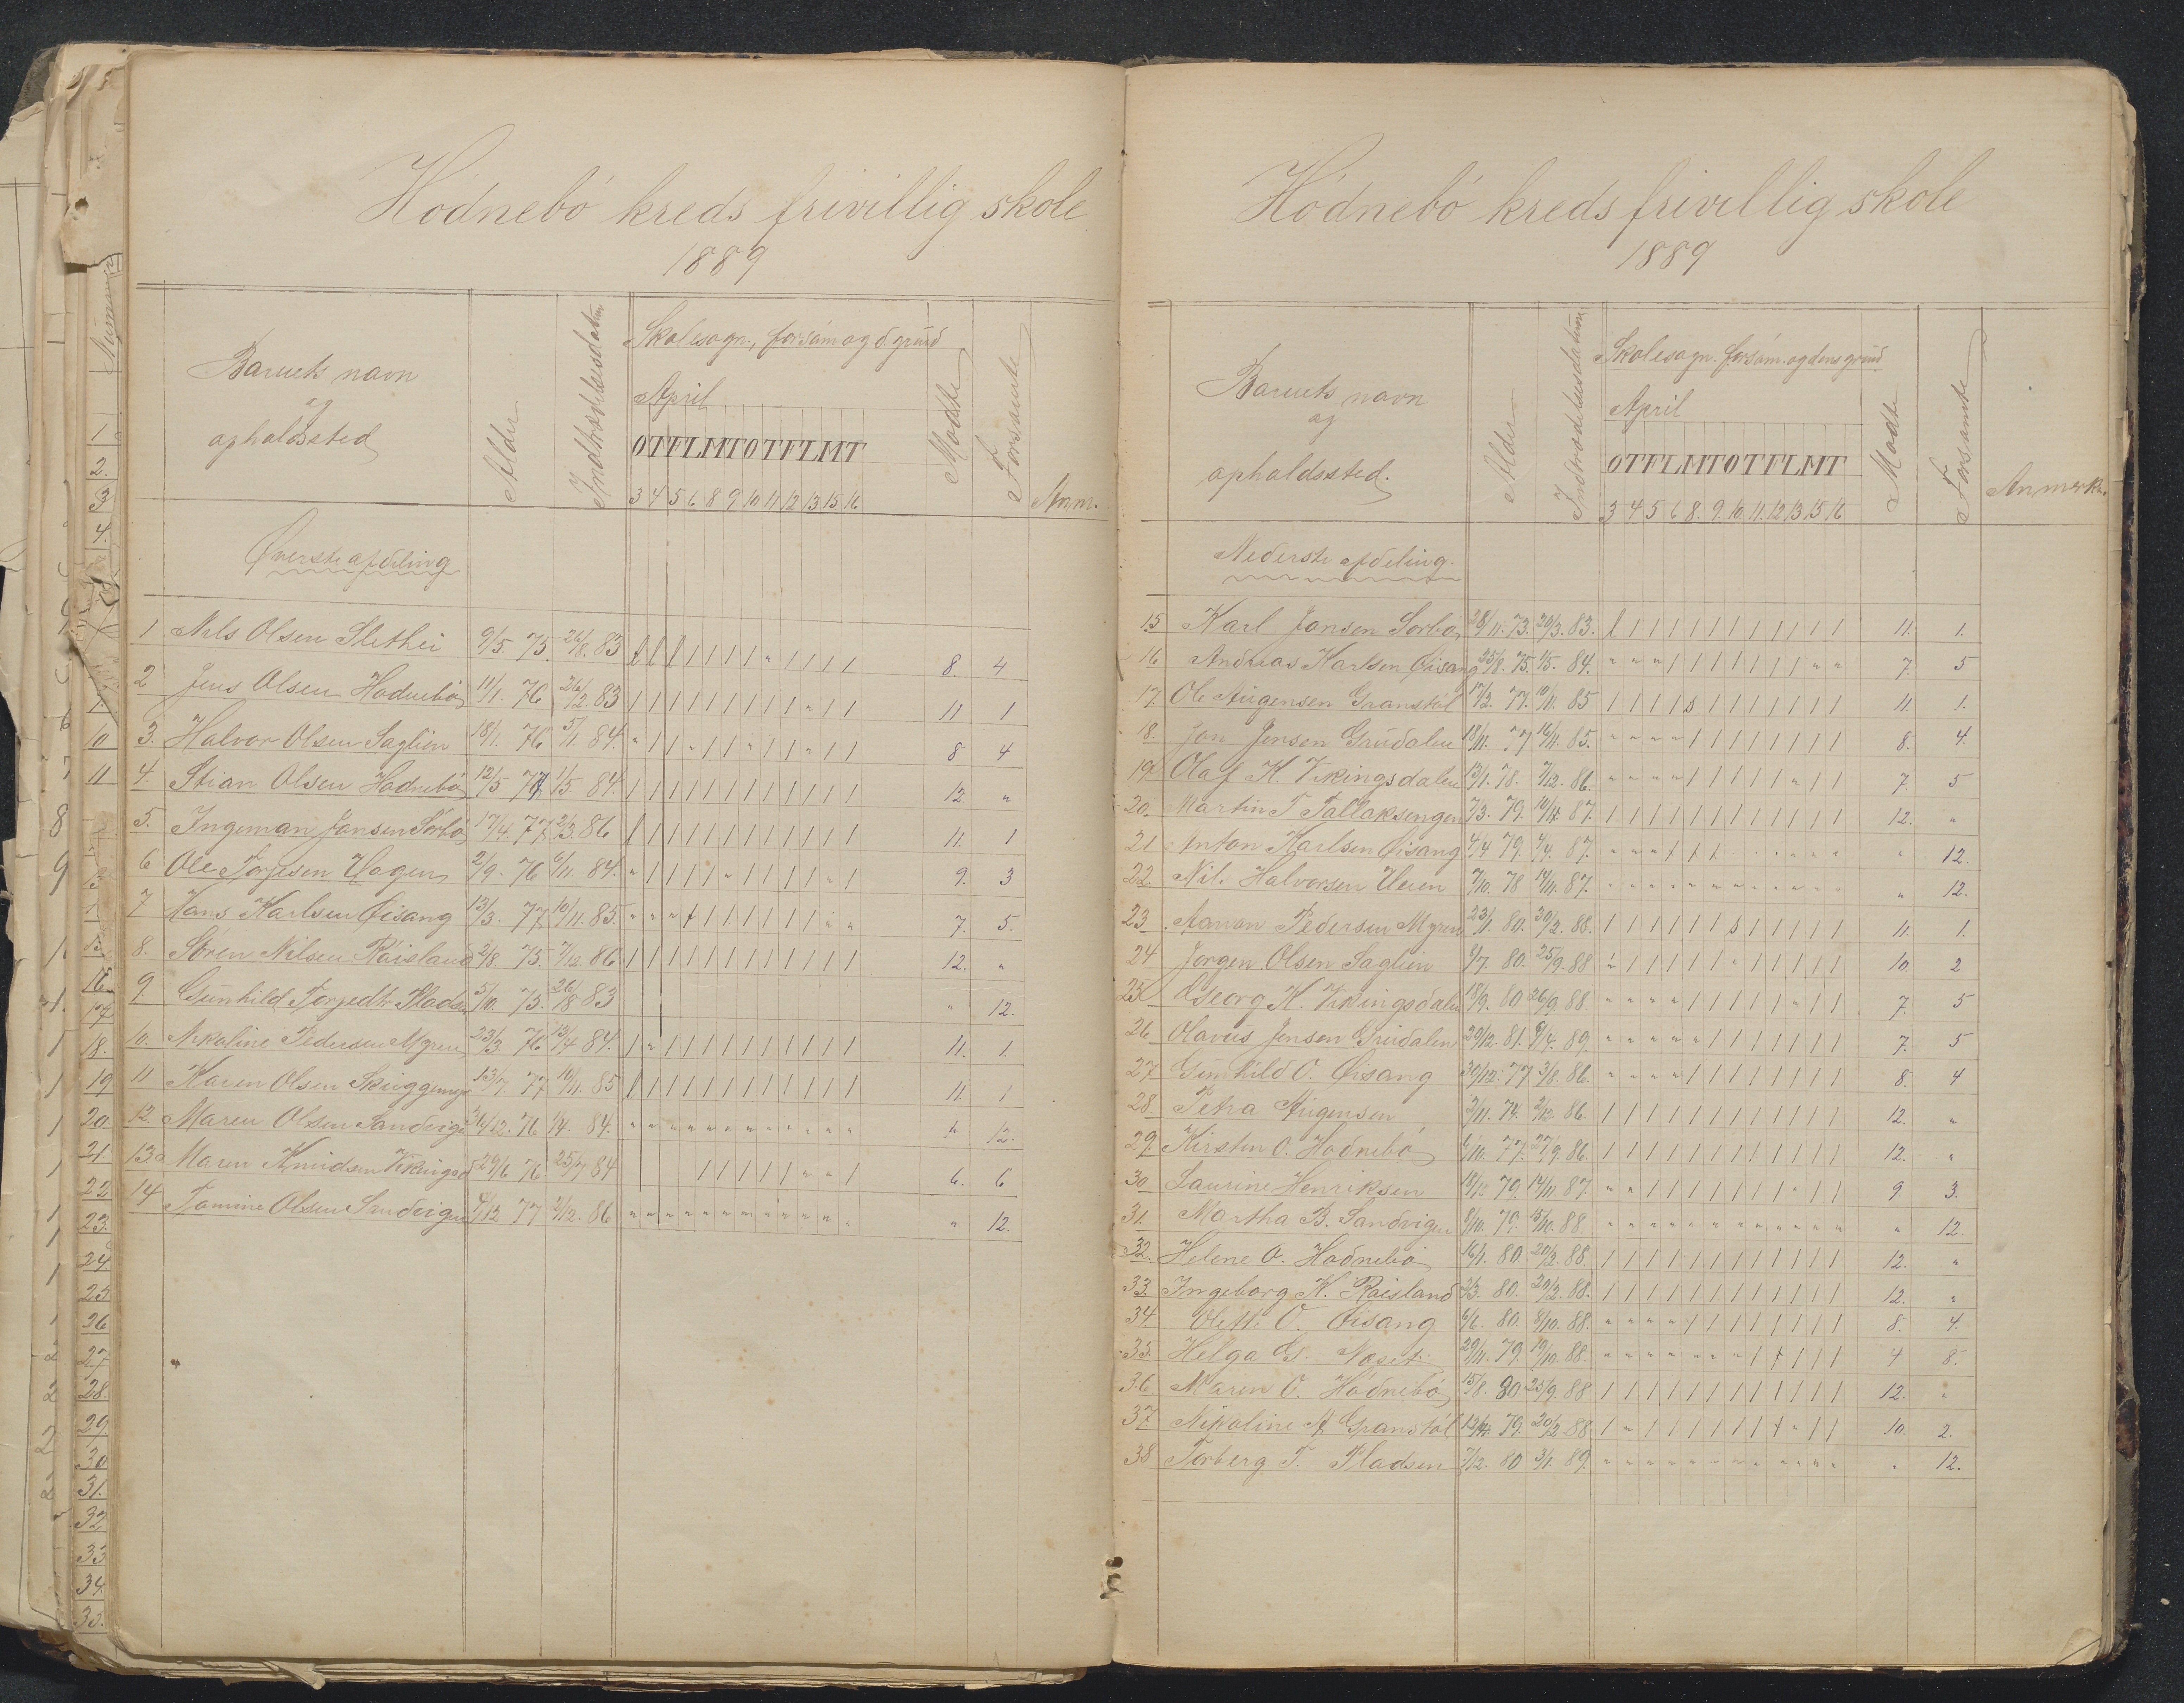 Hödnebö kreds frivillig skole
1889
Barnets navn
og
opholdssted
Alder
Indtrædelsesdatum
Skolesøgn., forsöm og d grund
April
O T F L M T O T F L M T
3 4 5 6 8 9 10 11 12 13 15 16
Mødte
Forsømte
Anm.
Øverste afdeling
1 Nils Olsen Slethei 9/5. 75. 26/8. 83 8. 4
2 Jens Olsen Hødnebö 11/1. 76 26/2. 83 11 1
3. Halvor Olsen Saglien 18/1. 76 5/11 84. 8 4
4. Stian Olsen Hødnebö 12/5 77 1/5 84. 12. "
5. Ingeman Jansen Sörbö 17/4. 77. 2/3. 86 11. 1
6 Ole Torjesen Hagen 2/9. 76 6/11 84. 9. 3
7 Hans Karlsen Øisang 13/3. 77. 10/11. 85 7. 5.
8. Sören Nilsen Röisland 2/8. 75. 7/12. 86 12. "
9. Gunhild Torjedtr Pladsen 5/10. 75. 26/8 83 " 12.
10. Nikoline Pedersen Myren 23/3. 76 15/4 84. 11. 1.
11 Karen Olsen Skuggemyr 13/7. 77 10/11. 85 11. 1
12. Maren Olsen Sandvigen 24/12. 76 1/4. 84. " 12.
13. Maren Knudsen Vikingsd 29/6 76. 25/7 84 6. 6
14 Tomine Olsen Sandvigen 4/12 77 2/12. 86 " 12.
Hödnebö kreds frivillig skole
1889
Barnets navn
og
opholdssted.
Alder
Indtrædelsesdatum
Skolesøgn. forsöm. og dens grund
April
O T F L M T O T F L M T
3 4 5 6 8. 9. 10. 11. 12. 13. 15 16
Mødte
Forsømte
Anmerkn.
Nederste afdeling.
15 Karl Jansen Sørbö 28/11. 73. 20/3. 83. 11. 1.
16 Andreas Karlsen Øisang 25/8. 75. 1/5. 84. 7. 5
17. Ole Augensen Granstöl 17/2. 77. 10/11. 85 11. 1.
18. Jan Jensen Grûdalen 18/11. 77 16/11. 85. 8. 4.
19. Olaf K. Vikingsdalen 13/1. 78. 7/12. 86. 7. 5
20. Martin T Tallaksengen 7/3. 79. 14/11. 87. 12. "
21 Anton Karlsen Øisang 4/4 79. 4/4. 87. " 12.
22. Nil. Halvorsen Heien 7/10. 78 14/11. 87. " 12.
23 Aanon Pedersen Myren 23/1. 80. 30/2. 88. 11. 1.
24 Jørgen Olsen Saglien 8/7. 80. 25/9. 88 10. 2
25 Georg K. Vikingsdalen 18/9. 80 26/9. 88 7. 5
26 Olavus Jensen Grûdalen 29/12. 81. 9/4. 89 7. 5
27. Gunhild O. Øisang 30/12. 77. 3/8. 86. 8. 4
28. Petra Augensen 2/11. 78. 2/12 86. 12. "
29. Kirstin O. Hødnebö 6/10. 77. 27/9. 86. 12. "
30. Laurine Henriksen 18/12 79. 14/11. 87. 9. 3.
31. Martha B. Sandvigen 8/10. 79. 15/10. 88. " 12.
32. Helene O. Hødnebö 16/1. 80 20/2. 88. 12. "
33. Ingeborg K. Røisland 2/3. 80. 20/2. 88. 12. "
34 Olette O. Øisang 6/6. 80. 8/10. 88. 8. 4.
35. Helga G. Naset 29/11. 79. 19/10. 88. 4 8.
36 Maren O. Hødnebö 15/8. 80. 25/9. 88 12. "
37 Nikoline A Granstöl 12/12 79. 20/2 88 10. 2.
38 Torberg T. Pladsen 7/12. 80 3/1. 89. " 12.